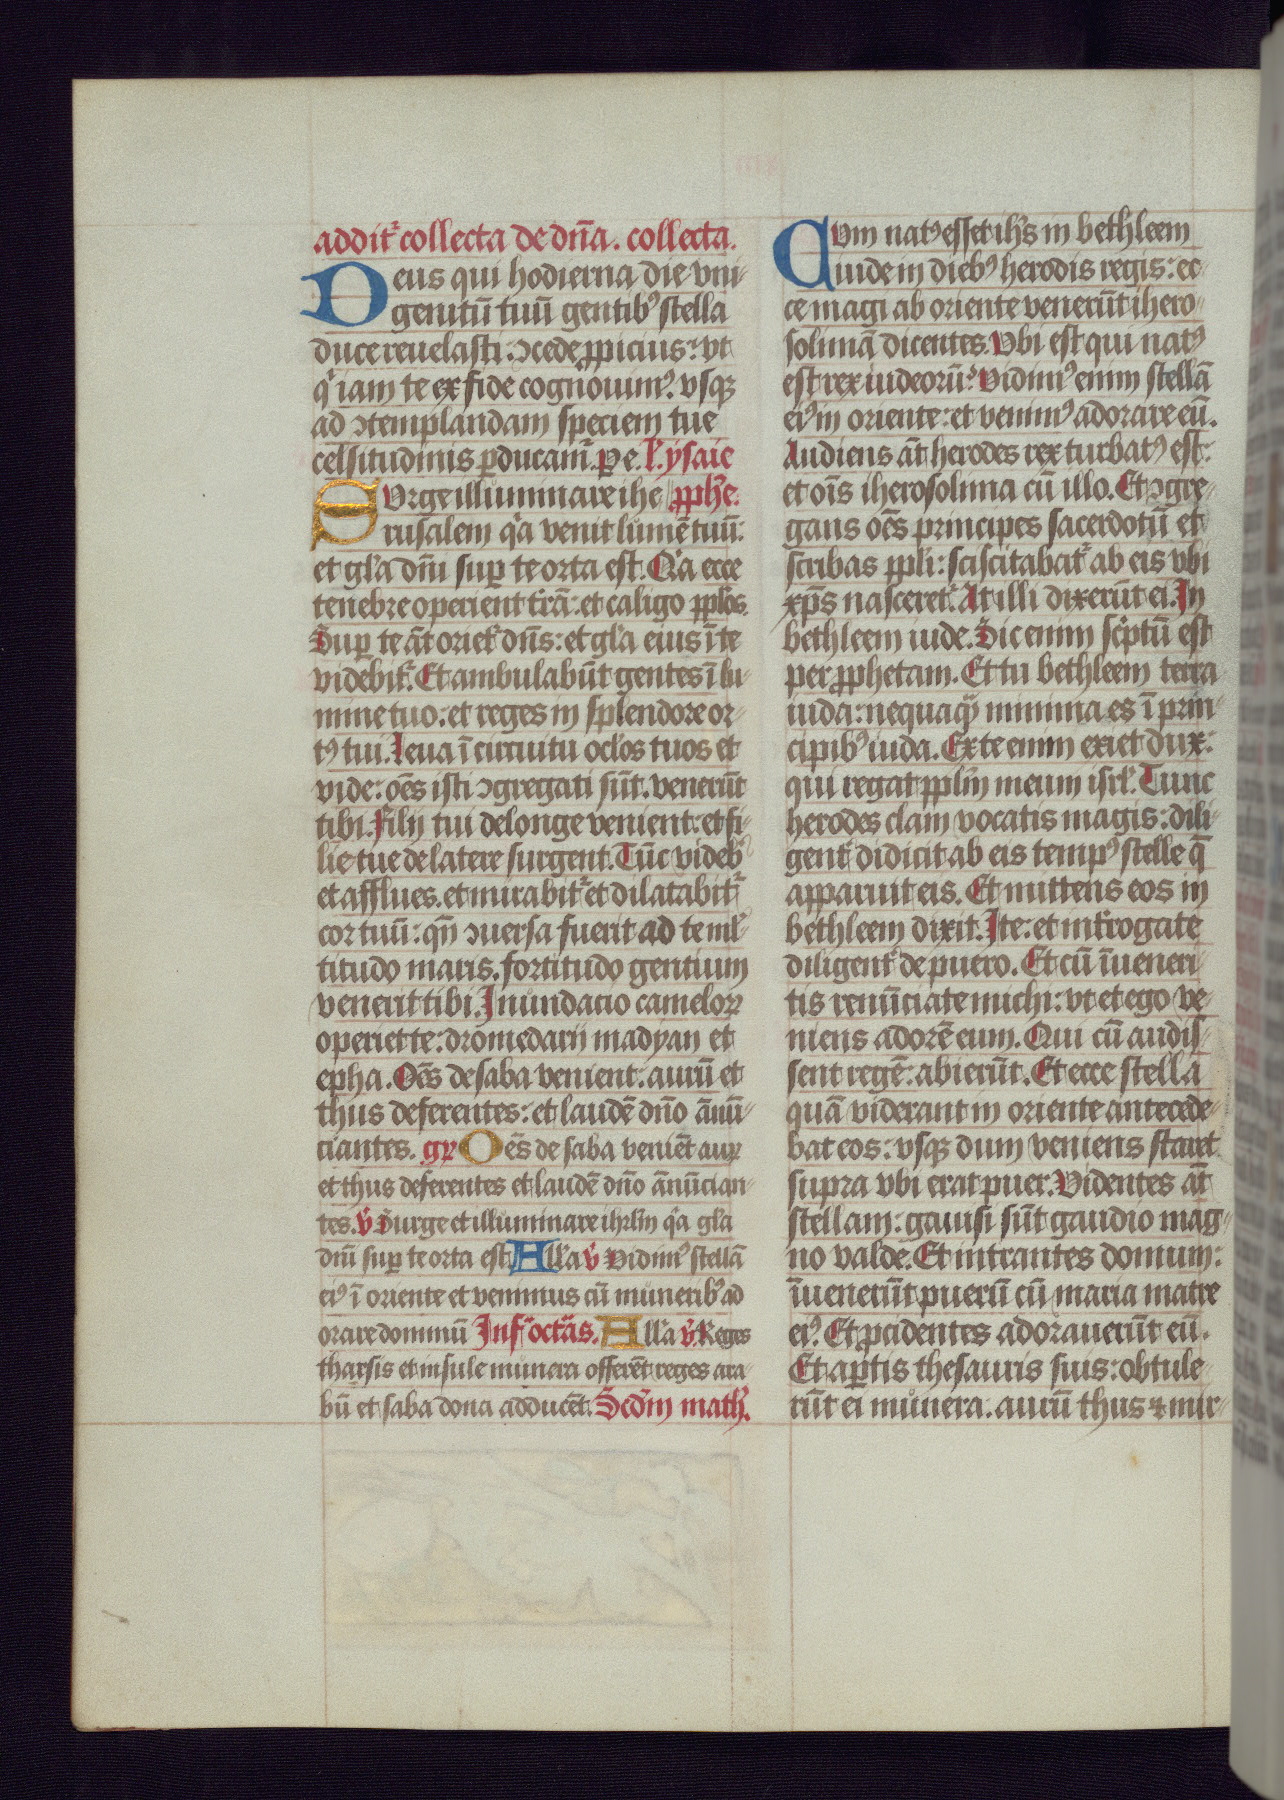 addit᷑ collecta de dn̄a. collecta.
Deus qui hodierna die vni-
genitū tuū gentibꝰ stella
duce reuelasti: ꝯcede ꝓpicius: vt
qⁱ iam te ex fide cognouimꝰ. vsqꝫ
ad ꝯtemplandam speciem tue
celsitudinis ꝑducam᷑. Ꝑ e. l'. ysaie
SVrge illuminare ihe ꝓph̄e.
rusalem qᵃ venit lumē tuū:
et gl'a dn̄i suꝑ te orta est. Qᵃ ecce
tenebre operient t̄rā: et caligo pp̄los.
Suꝑ te āt oriet᷑ dn̄s: et gl'a eius ī te
videbit᷑. Et ambulabūt gentes ī lu-
mine tuo: et reges in splendore or-
tꝰ tui. Leua ī circuitu oc̄los tuos et
vide: oēs isti ꝯgregati sūt. venerūt
tibi. Filij tui de longe venient: et fi-
lie tue de latere surgent. Tūc videbꝰ
et afflues. et mirabit᷑ et dilatabit᷑
cor tuū: qn̄ ꝯuersa fuerit ad te ml'-
titudo maris. fortitudo gentium
venerit tibi. Inundacio camelorꝝ
operiet te: dromedarij madyan et
epha. Oēs de saba venient. aurū et
thus deferentes: et laudē dn̄o ānū-
ciantes. gr̄ Oēs de saba veniēt aur̄
et thus deferentes et laudē dn̄o ānūcian-
tes. v̄ Surge et illuminare ihrl̄m qᵃ gl'a
dn̄i suꝑ te orta est All'a v̄ Vidimꝰ stellā
eiꝰ ī oriente et venimus cū muneribꝰ ad
orare dominū Infᵃ octās. All'a v̄. Reges
tharsis et insule munera offerēt reges ara-
bū et saba dona adducēt. Scdm̄ math'.
CVm natꝰ esset ih̄s in bethleem
iude in diebꝰ herodis regis: ec-
ce magi ab oriente venerūt ihero-
solimā dicentes. Vbi est qui natꝰ
est rex iudeorū? Vidimꝰ enim stellā
eiꝰ in oriente: et venimꝰ adorare eū.
Audiens āt herodes rex turbatꝰ est:
et oīs iherosolima cū illo. Et ꝯgre-
gans oēs principes sacerdotū et
scribas pp̄li: sciscitabat᷑ ab eis vbi
xp̄s nasceret᷑. At illi dixerūt ei. In
bethleem iude. Sic enim scⁱptū est
per ꝓphetam. Et tu bethleem terra
iuda: nequaqᷓ minima es ī prin-
cipibꝰ iuda. Ex te enim exiet dux:
qui regat pp̄lm̄ meum isrl'. Tunc
herodes clam vocatis magis: dili-
gent᷑ didicit ab eis tempꝰ stelle q̄
apparuit eis. Et mittens eos in
bethleem dixit. Ite: et int᷑rogate
diligent᷑ de puero. Et cū īueneri-
tis renūciate michi: vt et ego ve-
niens adorē eum. Qui cū audis-
sent regē: abierūt. Et ecce stella
quā viderant in oriente antecede-
bat eos: vsqꝫ dum veniens staret
supra vbi erat puer. Videntes āt
stellam: gauisi sūt gaudio mag-
no valde. Et intrantes domum:
īuenerūt puerū cū maria matre
eiꝰ. Et ꝓcidentes adorauerūt eū.
Et aꝑtis thesauris suis: obtule-
rūt ei munera. aurū thus ⁊ mir-